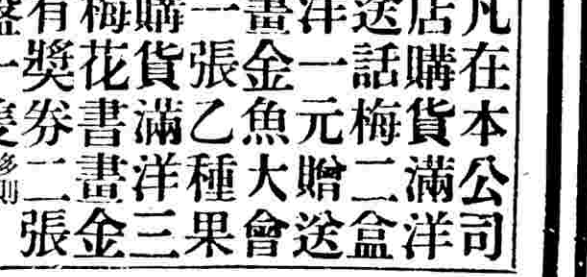 凡在本公司
店購貨滿洋
送話梅二盒
洋一元贈送
畫金魚大會
一張乙種果
購貨滿洋三
梅花書畫金
有獎券二張
一